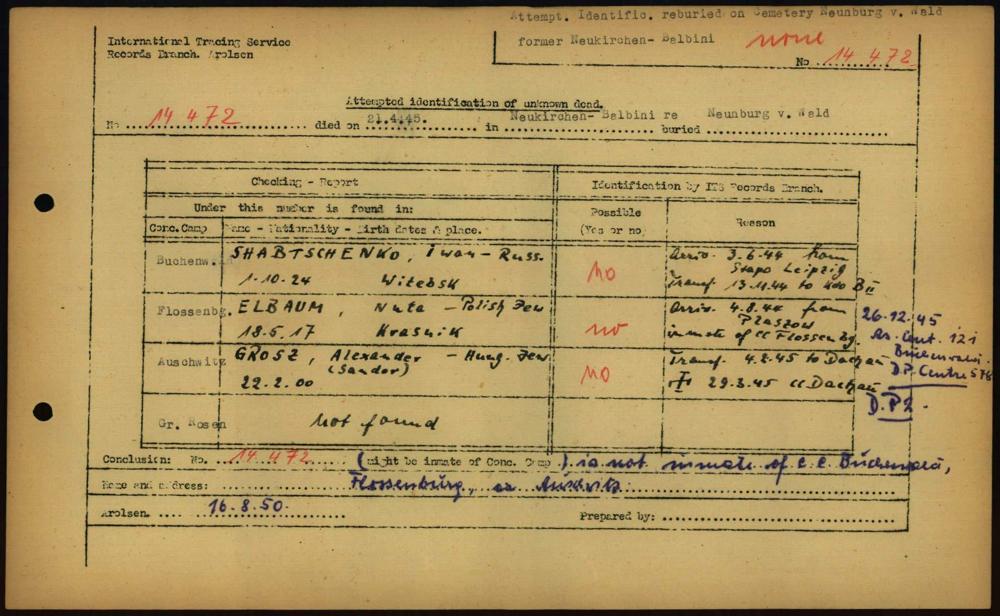 Attempt. Identific. reburied on Cemetery Neunburg v. Wald
former Neukirchen- Balbini none
No 14 472
International Tracing Service
Records Branch. Arolsen
Attempted identification of unknown dead.
No 14 472 died on 21.4.45. in Neukirchen- Balbini re buried Neunburg v. Wald
Checking - Report
Identification by ITS Records Branch.
Under this number is found in:
Possible (Yes or no)
Reason
Conc.Camp Name - Nationality - Birth dates & place.
Buchenwald SHABTSCHENKO, Iwan - Russ. no Arriv. 3.6.44 from
Stapo Leipzig
1.10.24 Witebsk Transf 13.11.44 to Kdo BII
Flossenbg. ELBAUM, Nuta - Polish Jew no Arriv. 4.8.44 from
Plaszow
18.5.17 Krasnik inmate of cc Flossenbg.
26.12.45
121
Buchenwald.
D.P. Centre 578
D.P2.
Auschwitz GROSZ, Alexander - Hung. Jew no Transf. 4.2.45 to Dachau
(Sandor)
22.2.00 29.3.45 cc Dachau
Gr. Rosen not found
Conclusion: No. 14 472 (might be inmate of Conc. Camp) is not inmate of c.c. Buchenwald,
Name and address: Flossenbürg, or Auschwitz
Arolsen 16.8.50. Prepared by: